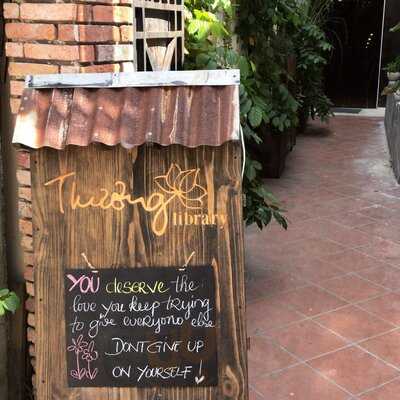 Thương
library
YOU deserve the
love you keep trying
to give everyone else
DON'T GIVE UP
ON YOURSELF!